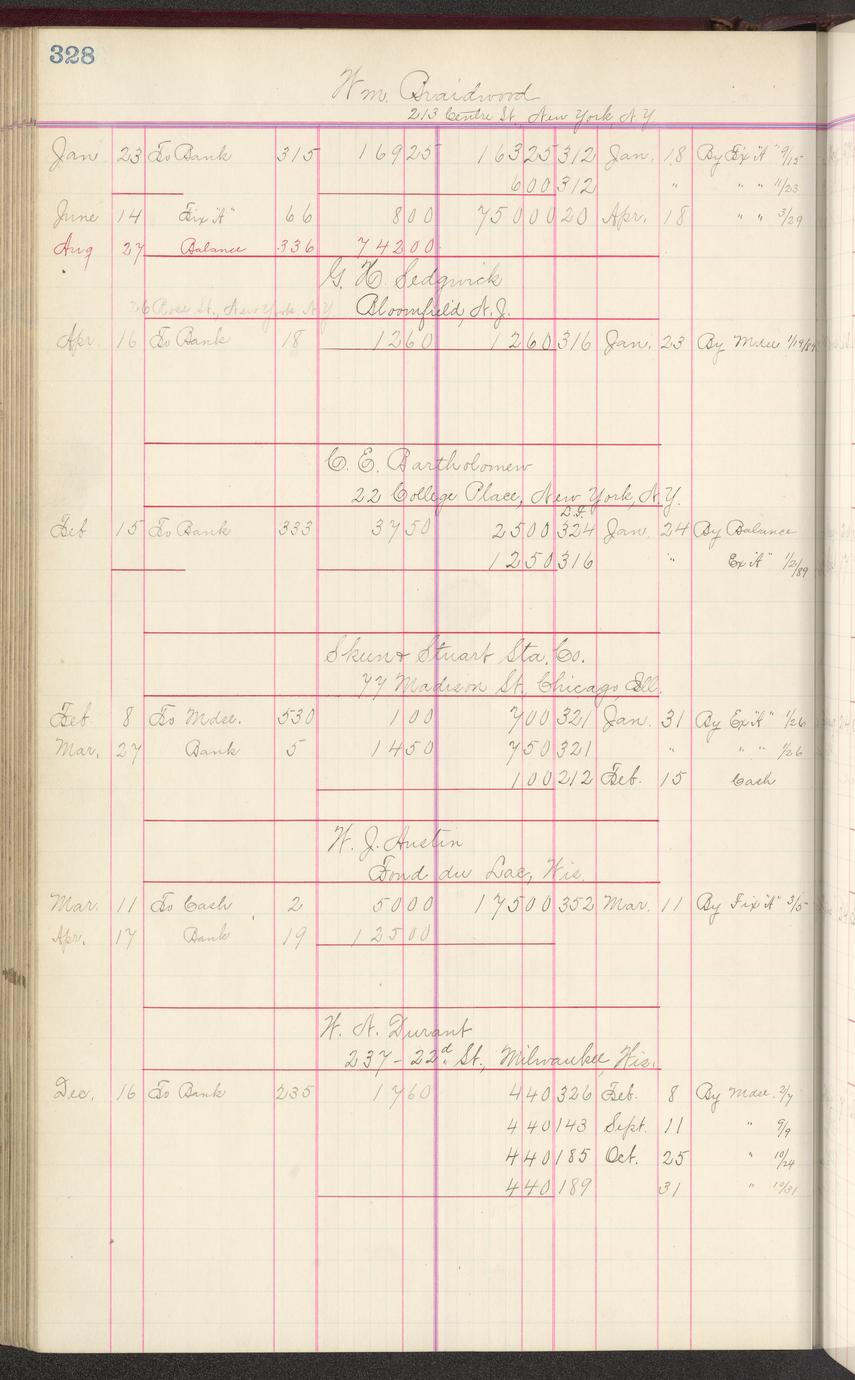 328
Wm. Braidwood
213 Centre St., New York, N.Y.
Jan 23 To Bank 315 169 25 163 25 312 Jan. 18 By Fix "A" 9/15
6 00 312 " " " 11/23
June 14 Fix "A" 66 8 00 750 00 20 Apr. 18 " " 3/29
Aug 27 Balance 336 742 00
G. H. Sedgwick
76 Rose St., New York, N.Y. Bloomfield, N.J.
Apr 16 To Bank 18 12 60 12 60 316 Jan. 23 By Mdse 1/19/89
C. E. Bartholomew
22 College Place, New York, N.Y.
Feb 15 To Bank 333 37 50 25 00 324 Jan. 24 By Balance
12 50 316 " Ex "A" 1/2/89
& Stuart Sta. Co.
77 Madison St., Chicago, Ill.
Feb. 8 To Mdse. 530 1 00 7 00 321 Jan. 31 By Ex "A" 1/26
Mar. 27 Bank 5 14 50 7 50 321 " " " 1/26
1 00 212 Feb. 15 Cash
W. J. Austin
Fond du Lac, Wis.
Mar. 11 To Cash 2 50 00 175 00 352 Mar. 11 By Fix "A" 3/5
Apr. 17 Bank 19 125 00
W. A. Durant
237 - 22d St., Milwaukee, Wis.
Dec. 16 To Bank 235 17 60 4 40 326 Feb. 8 By Mdse. 2/7
4 40 143 Sept. 11 " 9/9
4 40 185 Oct. 25 " 10/24
4 40 189 31 " 10/31